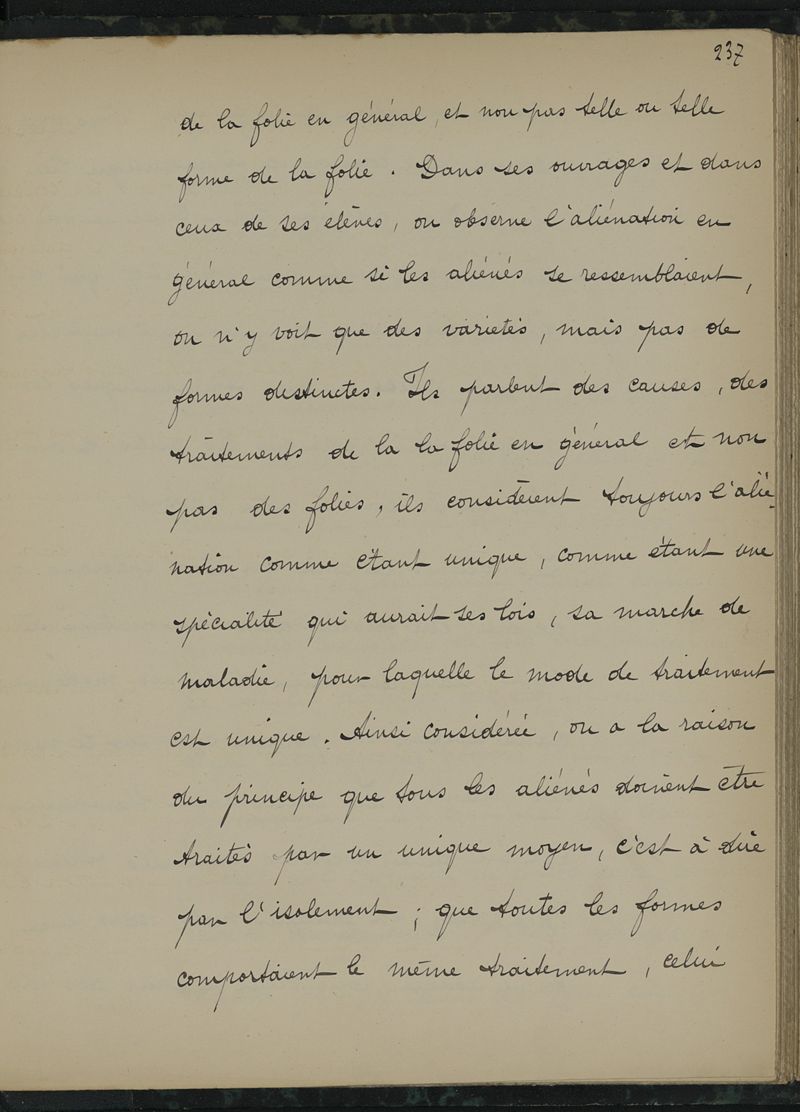 237
de la folie en général, et non pas telle ou telle
forme de la folie. Dans ses ouvrages et dans
ceux de ses élèves, on observe l'aliénation en
général comme si les aliénés se ressemblaient,
on n'y voit que des varietés, mais pas de
formes distinctes. Ils parlent des causes, des
traitements de la la folie en général et non
pas des folies, ils considèrent toujours l'alié-
nation comme étant unique, comme étant une
spécialité qui aurait ses lois, sa marche de
maladie, pour laquelle le mode de traitement
est unique. Ainsi considérée, on a la raison
du principe que tous les aliénés doivent être
traités par un unique moyen, c'est à dire
par l'isolement ; que toutes les formes
comportaient le même traitement, celui